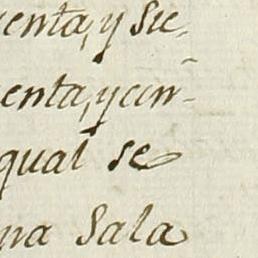 enta, y Sie-
enta, y cin-
qual se
na Sala